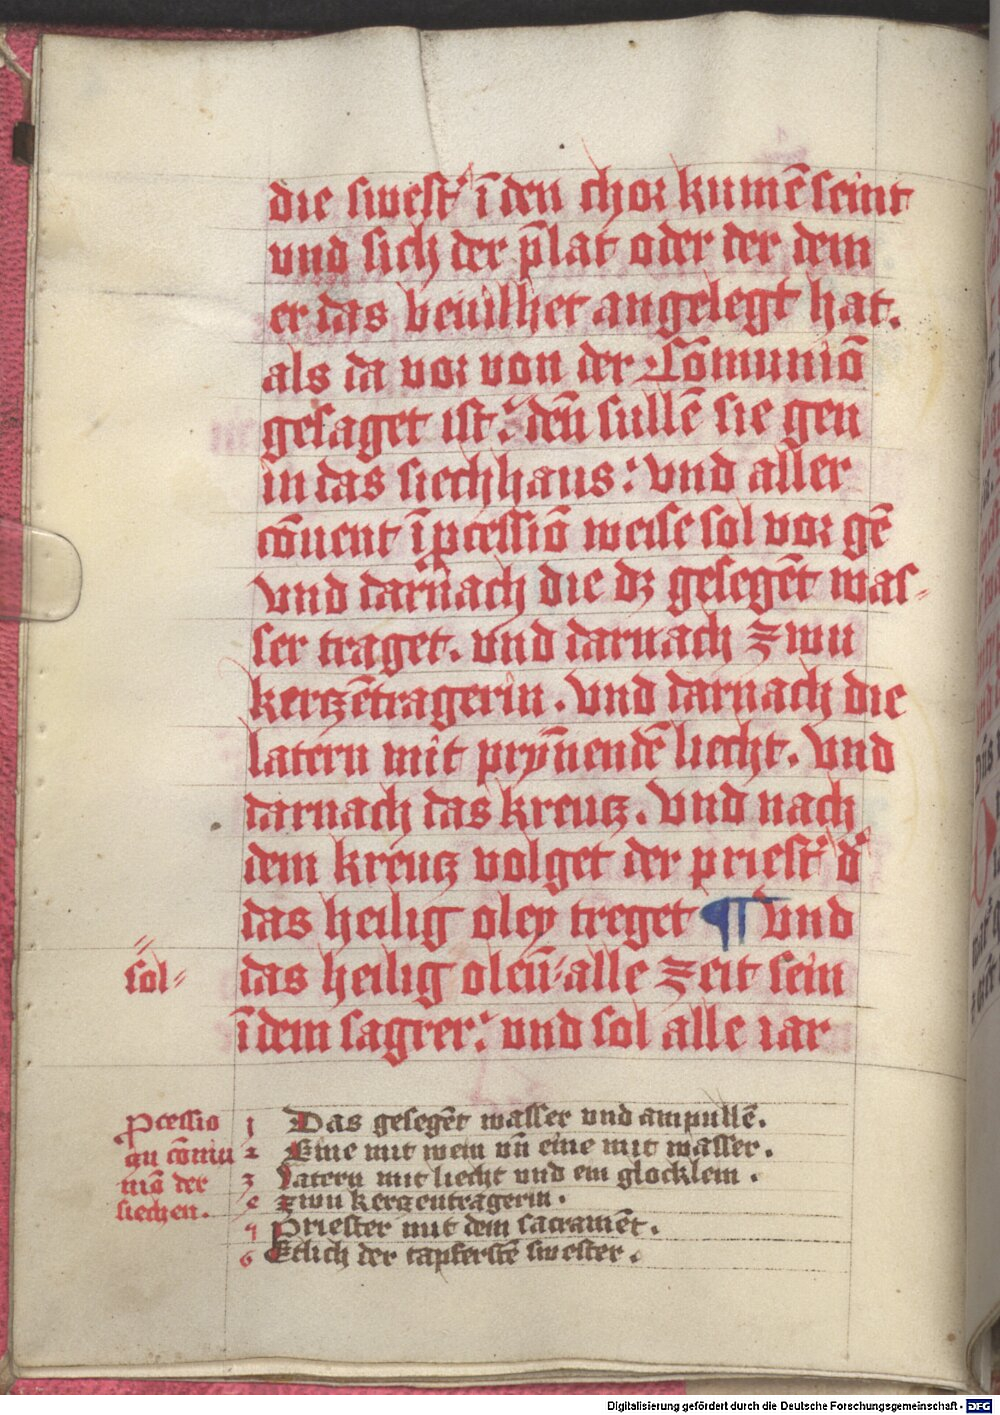 die swest' ī den chor kumē seint
vnd sich der p̄lat oder der dem
er das beuilhet angelegt hat.
als da vor von der Cōmuniō
gesaget ist: deñ sullē sie gen
in das siechhaus: vnd aller
cōuent ī ꝓcessiō weise sol vor gē
vnd darnach die dz gesegēt was-
ser traget. vnd darnach zwu
kerzētragerin. Vnd darnach die
latern mit prȳnendē liecht. Vnd
darnach das kreutz. Vnd nach
dem kreutz volget der priest' d'
das heilig oley treget ¶ Vnd
sol- das heilig oleū alle zeit sein
ī dem sagrer: vnd sol alle iar
ꝓcessio
zu cōmu
niō der
siechen.
1 Das gesegēt wasser vnd ampullē.
2 Eine mit wein vñ eine mit wasser.
3 Latern mit liecht vnd ein glocklein.
4 zwu kerzentragerin.
5 Priester mit dem sacramēt.
6 Etlich der tapferstē swester.
Digitalisierung gefördert durch die Deutsche Forschungsgemeinschaft - DFG